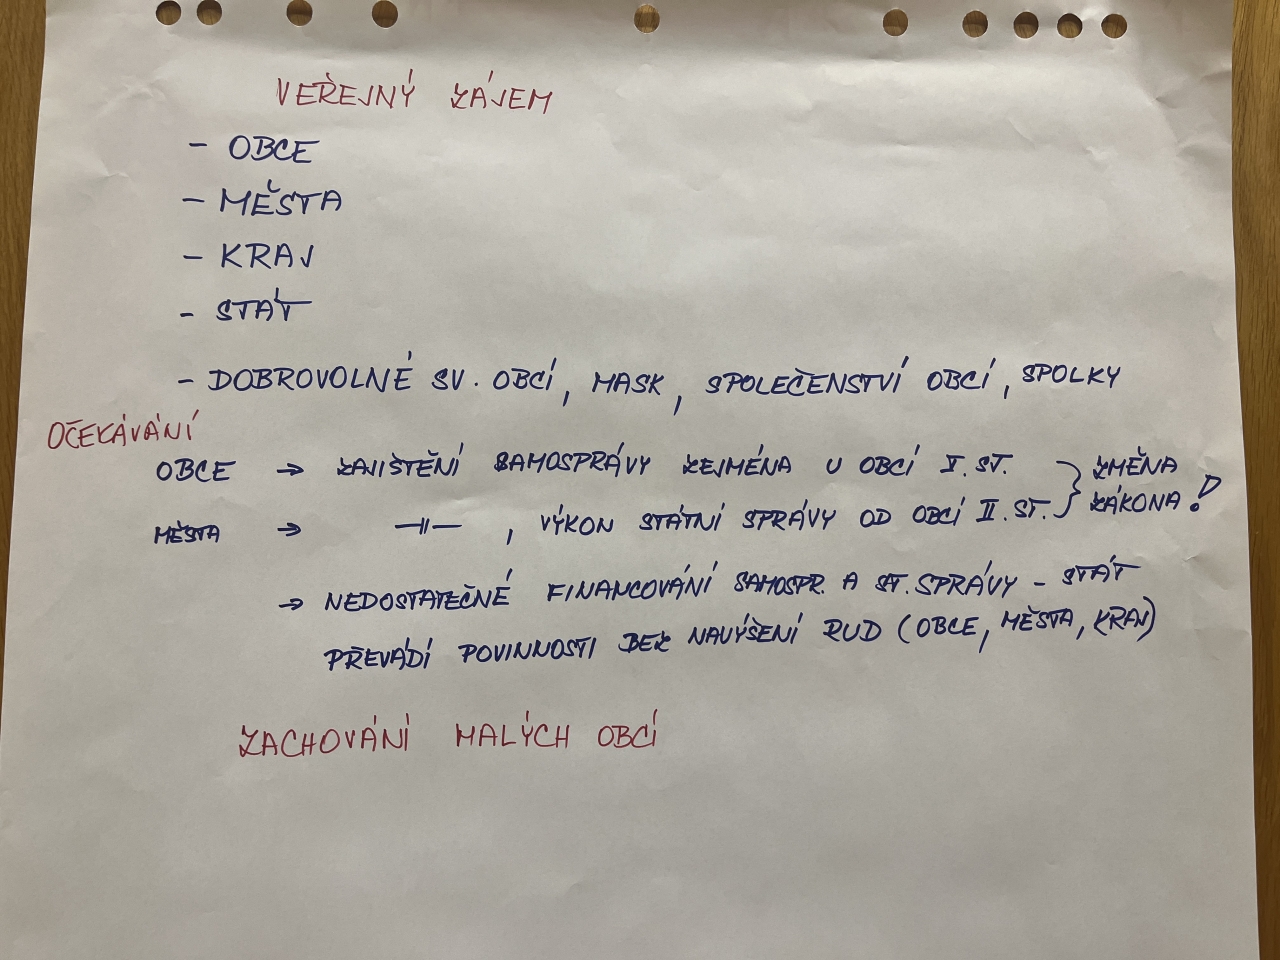 VEŘEJNÝ ZÁJEM
- OBCE
- MĚSTA
- KRAJ
- STÁT
- DOBROVOLNÉ SV. OBCÍ, MASK, SPOLEČENSTVÍ OBCÍ, SPOLKY
OČEKÁVÁNÍ
OBCE → ZAJIŠTĚNÍ SAMOSPRÁVY ZEJMÉNA U OBCÍ I. ST. } ZMĚNA
MĚSTA → —||— , VÝKON STÁTNÍ SPRÁVY OD OBCÍ II. ST. ZÁKONA!
→ NEDOSTATEČNÉ FINANCOVÁNÍ SAMOSPR. A ST. SPRÁVY - STÁT
PŘEVÁDÍ POVINNOSTI BEZ NAVÝŠENÍ RUD (OBCE, MĚSTA, KRAJ)
ZACHOVÁNÍ MALÝCH OBCÍ